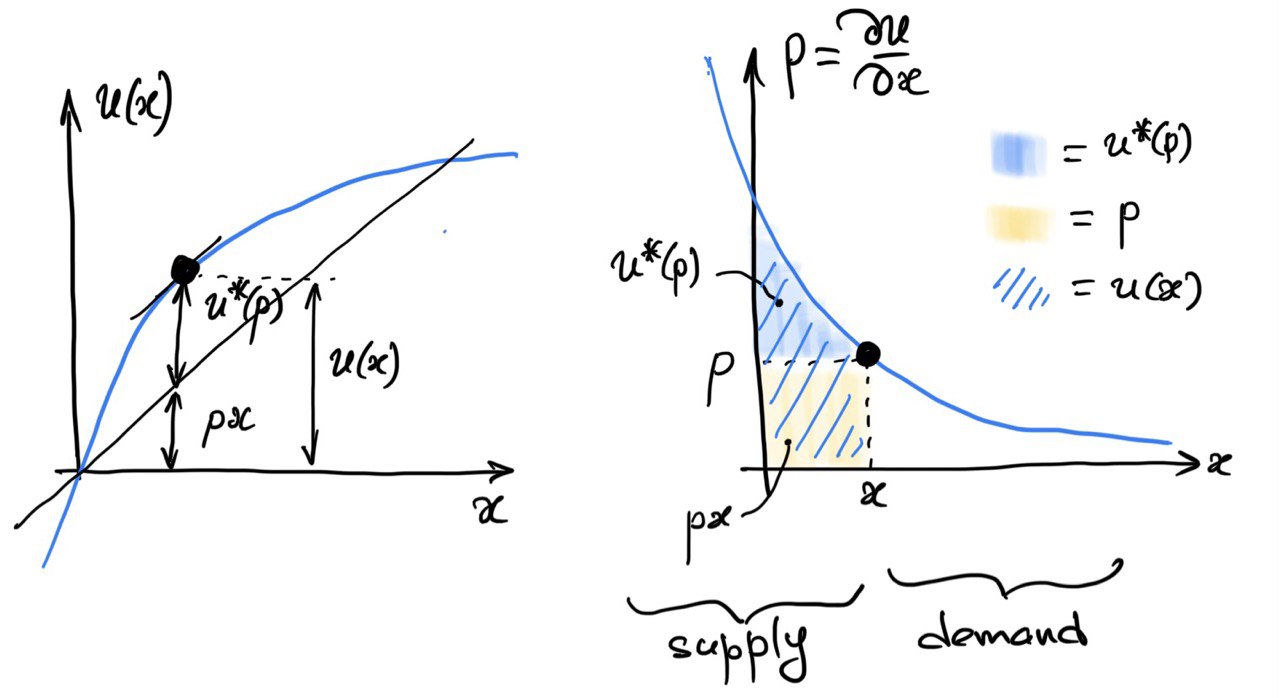 u(x)
u*(p)
u(x)
px
x
p = ∂u/∂x
= u*(p)
= p
= u(x)
u*(p)
p
x
x
px
supply
demand